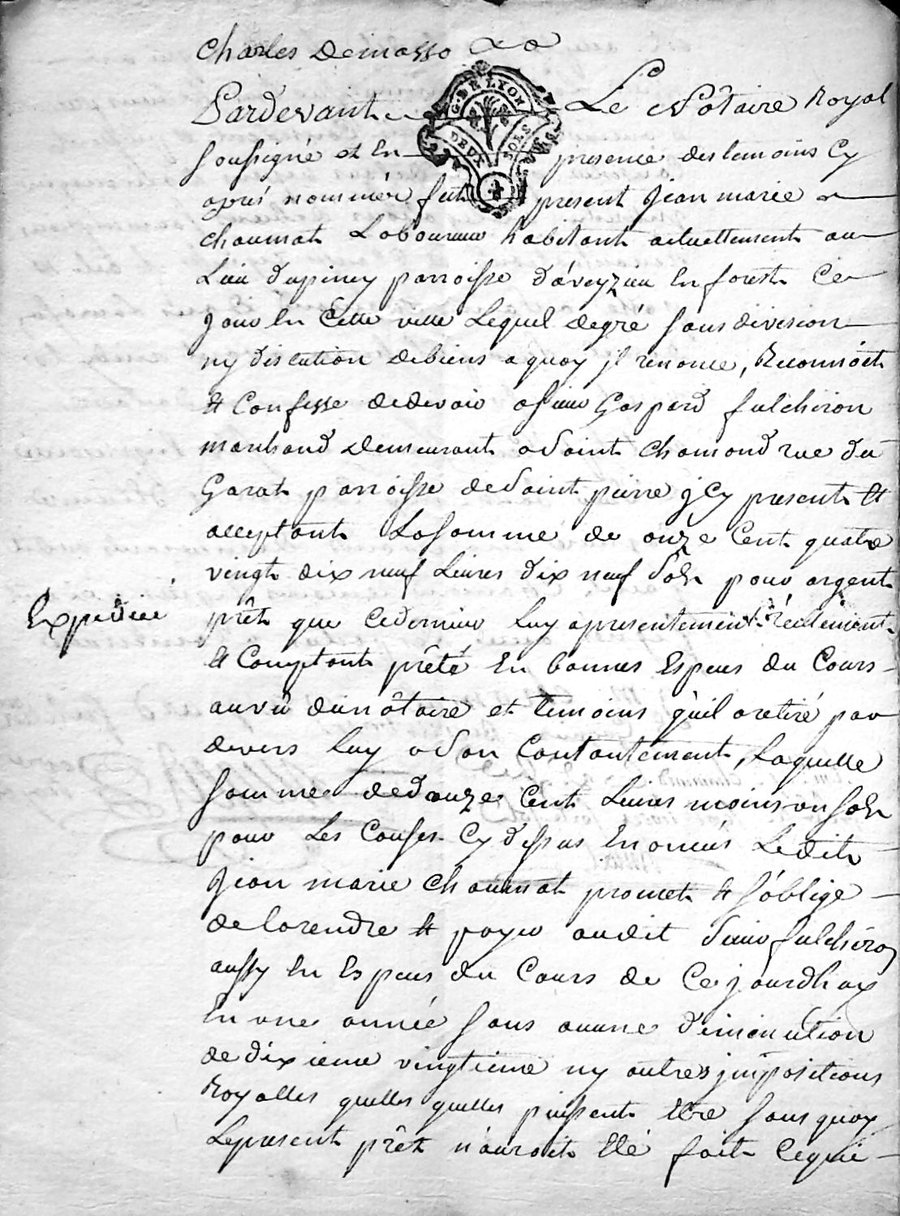 Charles Demasso
Pardevant Le Nôtaire Royal
G. DE LYON
DEUX SOLS
soussigné et En presence des temoins Cy
aprés nommés fut present Jean marie
chaumat Laboureur habitant actuellement au
Lieu d'apiney parroisse d'aveyzieu En forest Ce
Jour En Cette ville Lequel degré sans division
ny discution debiens a quoy jl renonce, Reconnoit
& Confesse dedevoir asieur Gaspard fulchiron
marchand Demeurant a Saint Chamond rue du
Garat parroisse de Saint pierre jCy present &
acceptant La somme de onze Cent quatre
vingt dix neuf Livres dix neuf Sols pour argent
Expedié
prêt que Cedernier Luy apresentement réellement
& Comptant prêté En bonnes Especes du Cours
auvû dunôtaire et temoins quil a retiré par
devers Luy a Son Contantement, Laquelle
somme dedouze Cent Livres moins un Sols
pour Les Causes Cy dessus Enoncées Ledit
Jean marie Chaumat promet & s'oblige
de la rendre & payer audit Sieur fulchiron
aussy En Especes du Cours de Ce jourdhuy
En une année sans aucune diminution
de dixieme vingtieme ny autres jmpositions
Royalles quelles quelles puissent Etre sans quoy
Lepresent prêt n'auroit Eté fait Cequi